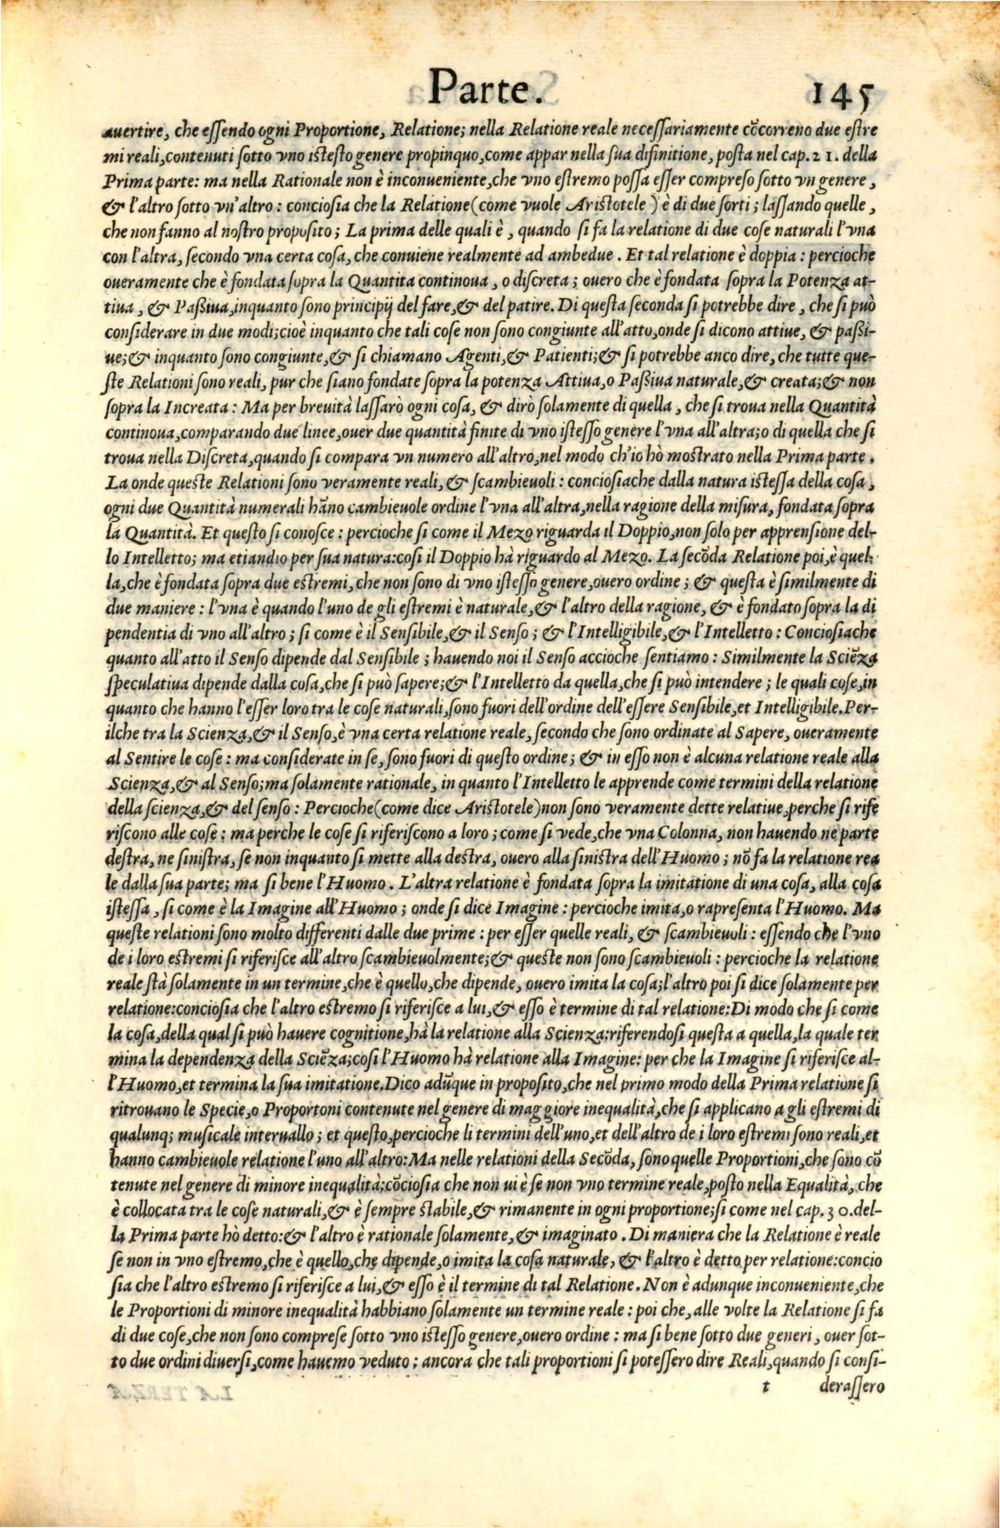 Parte. 145
auertire, che eſſendo ogni Proportione, Relatione; nella Relatione reale neceſſariamente cõcorreno due eſtre
mi reali,contenuti ſotto vno iſteſto genere propinquo,come appar nella ſua difinitione, poſta nel cap.21. della
Prima parte: ma nella Rationale non è inconueniente,che vno eſtremo poſſa eſſer compreſo ſotto vn genere,
& l'altro ſotto vn'altro: concioſia che la Relatione(come vuole Ariſtotele) è di due ſorti; laſſando quelle,
che non fanno al noſtro propoſito; La prima delle quali è, quando ſi fa la relatione di due coſe naturali l'vna
con l'altra, ſecondo vna certa coſa, che conuiene realmente ad ambedue. Et tal relatione è doppia: percioche
oueramente che è fondata ſopra la Quantità continoua, o diſcreta; ouero che è fondata ſopra la Potenza at-
tiua, & Paßiua,inquanto ſono principij del fare,& del patire. Di queſta ſeconda ſi potrebbe dire, che ſi può
conſiderare in due modi;cioè inquanto che tali coſe non ſono congiunte all'atto,onde ſi dicono attiue, & paßi-
ue;& inquanto ſono congiunte,& ſi chiamano Agenti,& Patienti;& ſi potrebbe anco dire, che tutte que-
ſte Relationi ſono reali, pur che ſiano fondate ſopra la potenza Attiua,o Paßiua naturale,& creata;& non
ſopra la Increata: Ma per breuità laſſarò ogni coſa, & dirò ſolamente di quella, che ſi troua nella Quantità
continoua,comparando due linee,ouer due quantità finite di vno iſteſſo genere l'vna all'altra;o di quella che ſi
troua nella Diſcreta,quando ſi compara vn numero all'altro,nel modo ch'io hò moſtrato nella Prima parte.
La onde queſte Relationi ſono veramente reali, & ſcambieuoli: concioſiache dalla natura iſteſſa della coſa,
ogni due Quantità numerali hãno cambieuole ordine l'vna all'altra,nella ragione della miſura, fondata ſopra
la Quantità. Et queſto ſi conoſce: percioche ſi come il Mezo riguarda il Doppio,non ſolo per apprenſione del-
lo Intelletto; ma etiandio per ſua natura:coſi il Doppio hà riguardo al Mezo. La ſecõda Relatione poi,è quel-
la,che è fondata ſopra due eſtremi,che non ſono di vno iſteſſo genere,ouero ordine; & queſta è ſimilmente di
due maniere: l'vna è quando l'uno de gli eſtremi è naturale,& l'altro della ragione, & è fondato ſopra la di
pendentia di vno all'altro; ſi come è il Senſibile,& il Senſo; & l'Intelligibile,& l'Intelletto: Concioſiache
quanto all'atto il Senſo dipende dal Senſibile; hauendo noi il Senſo accioche ſentiamo: Similmente la Sciẽza
ſpeculatiua dipende dalla coſa,che ſi può ſapere;& l'Intelletto da quella,che ſi può intendere; le quali coſe,in
quanto che hanno l'eſſer loro tra le coſe naturali,ſono fuori dell'ordine dell'eſſere Senſibile,et Intelligibile.Per-
ilche tra la Scienza,& il Senſo,è vna certa relatione reale, ſecondo che ſono ordinate al Sapere, oueramente
al Sentire le coſe: ma conſiderate in ſe, ſono fuori di queſto ordine; & in eſſo non è alcuna relatione reale alla
Scienza,& al Senſo;ma ſolamente rationale, in quanto l'Intelletto le apprende come termini della relatione
della ſcienza,& del ſenſo: Percioche(come dice Ariſtotele)non ſono veramente dette relatiue,perche ſi rife
riſcono alle coſe: ma perche le coſe ſi riferiſcono a loro; come ſi vede, che vna Colonna, non hauendo ne parte
deſtra, ne ſiniſtra, ſe non inquanto ſi mette alla deſtra, ouero alla ſiniſtra dell'Huomo; nõ fa la relatione rea
le dalla ſua parte; ma ſi bene l'Huomo. L'altra relatione è fondata ſopra la imitatione di una coſa, alla coſa
iſteſſa, ſi come è la Imagine all'Huomo; onde ſi dice Imagine: percioche imita,o rapreſenta l'Huomo. Ma
queſte relationi ſono molto differenti dalle due prime: per eſſer quelle reali, & ſcambieuoli: eſſendo che l'vno
de i loro eſtremi ſi riferiſce all'altro ſcambieuolmente;& queſte non ſono ſcambieuoli: percioche la relatione
reale ſtà ſolamente in un termine,che è quello,che dipende, ouero imita la coſa;l'altro poi ſi dice ſolamente per
relatione:concioſia che l'altro eſtremo ſi riferiſce a lui,& eſſo è termine di tal relatione:Di modo che ſi come
la coſa,della qual ſi può hauere cognitione,hà la relatione alla Scienza:riferendoſi queſta a quella,la quale ter
mina la dependenza della Sciẽza;coſi l'Huomo hà relatione alla Imagine: per che la Imagine ſi riferiſce al-
l'Huomo,et termina la ſua imitatione.Dico adũque in propoſito,che nel primo modo della Prima relatione ſi
ritrouano le Specie,o Proportoni contenute nel genere di maggiore inequalità,che ſi applicano a gli eſtremi di
qualunq; muſicale interuallo; et queſto,percioche li termini dell'uno,et dell'altro de i loro eſtremi ſono reali,et
hanno cambieuole relatione l'uno all'altro:Ma nelle relationi della Secõda, ſono quelle Proportioni,che ſono cõ
tenute nel genere di minore inequalità;cõcioſia che non ui è ſe non vno termine reale,poſto nella Equalità, che
è collocata tra le coſe naturali,& è ſempre ſtabile,& rimanente in ogni proportione;ſi come nel cap.30.del-
la Prima parte hò detto:& l'altro è rationale ſolamente,& imaginato. Di maniera che la Relatione è reale
ſe non in vno eſtremo,che è quello,che dipende,o imita la coſa naturale, & l'altro è detto per relatione:concio
ſia che l'altro eſtremo ſi riferiſce a lui,& eſſo è il termine di tal Relatione. Non è adunque inconueniente,che
le Proportioni di minore inequalità habbiano ſolamente un termine reale: poi che, alle volte la Relatione ſi fa
di due coſe,che non ſono compreſe ſotto vno iſteſſo genere,ouero ordine: ma ſi bene ſotto due generi, ouer ſot-
to due ordini diuerſi,come hauemo veduto: ancora che tali proportioni ſi poteſſero dire Reali,quando ſi conſi-
t deraſſero